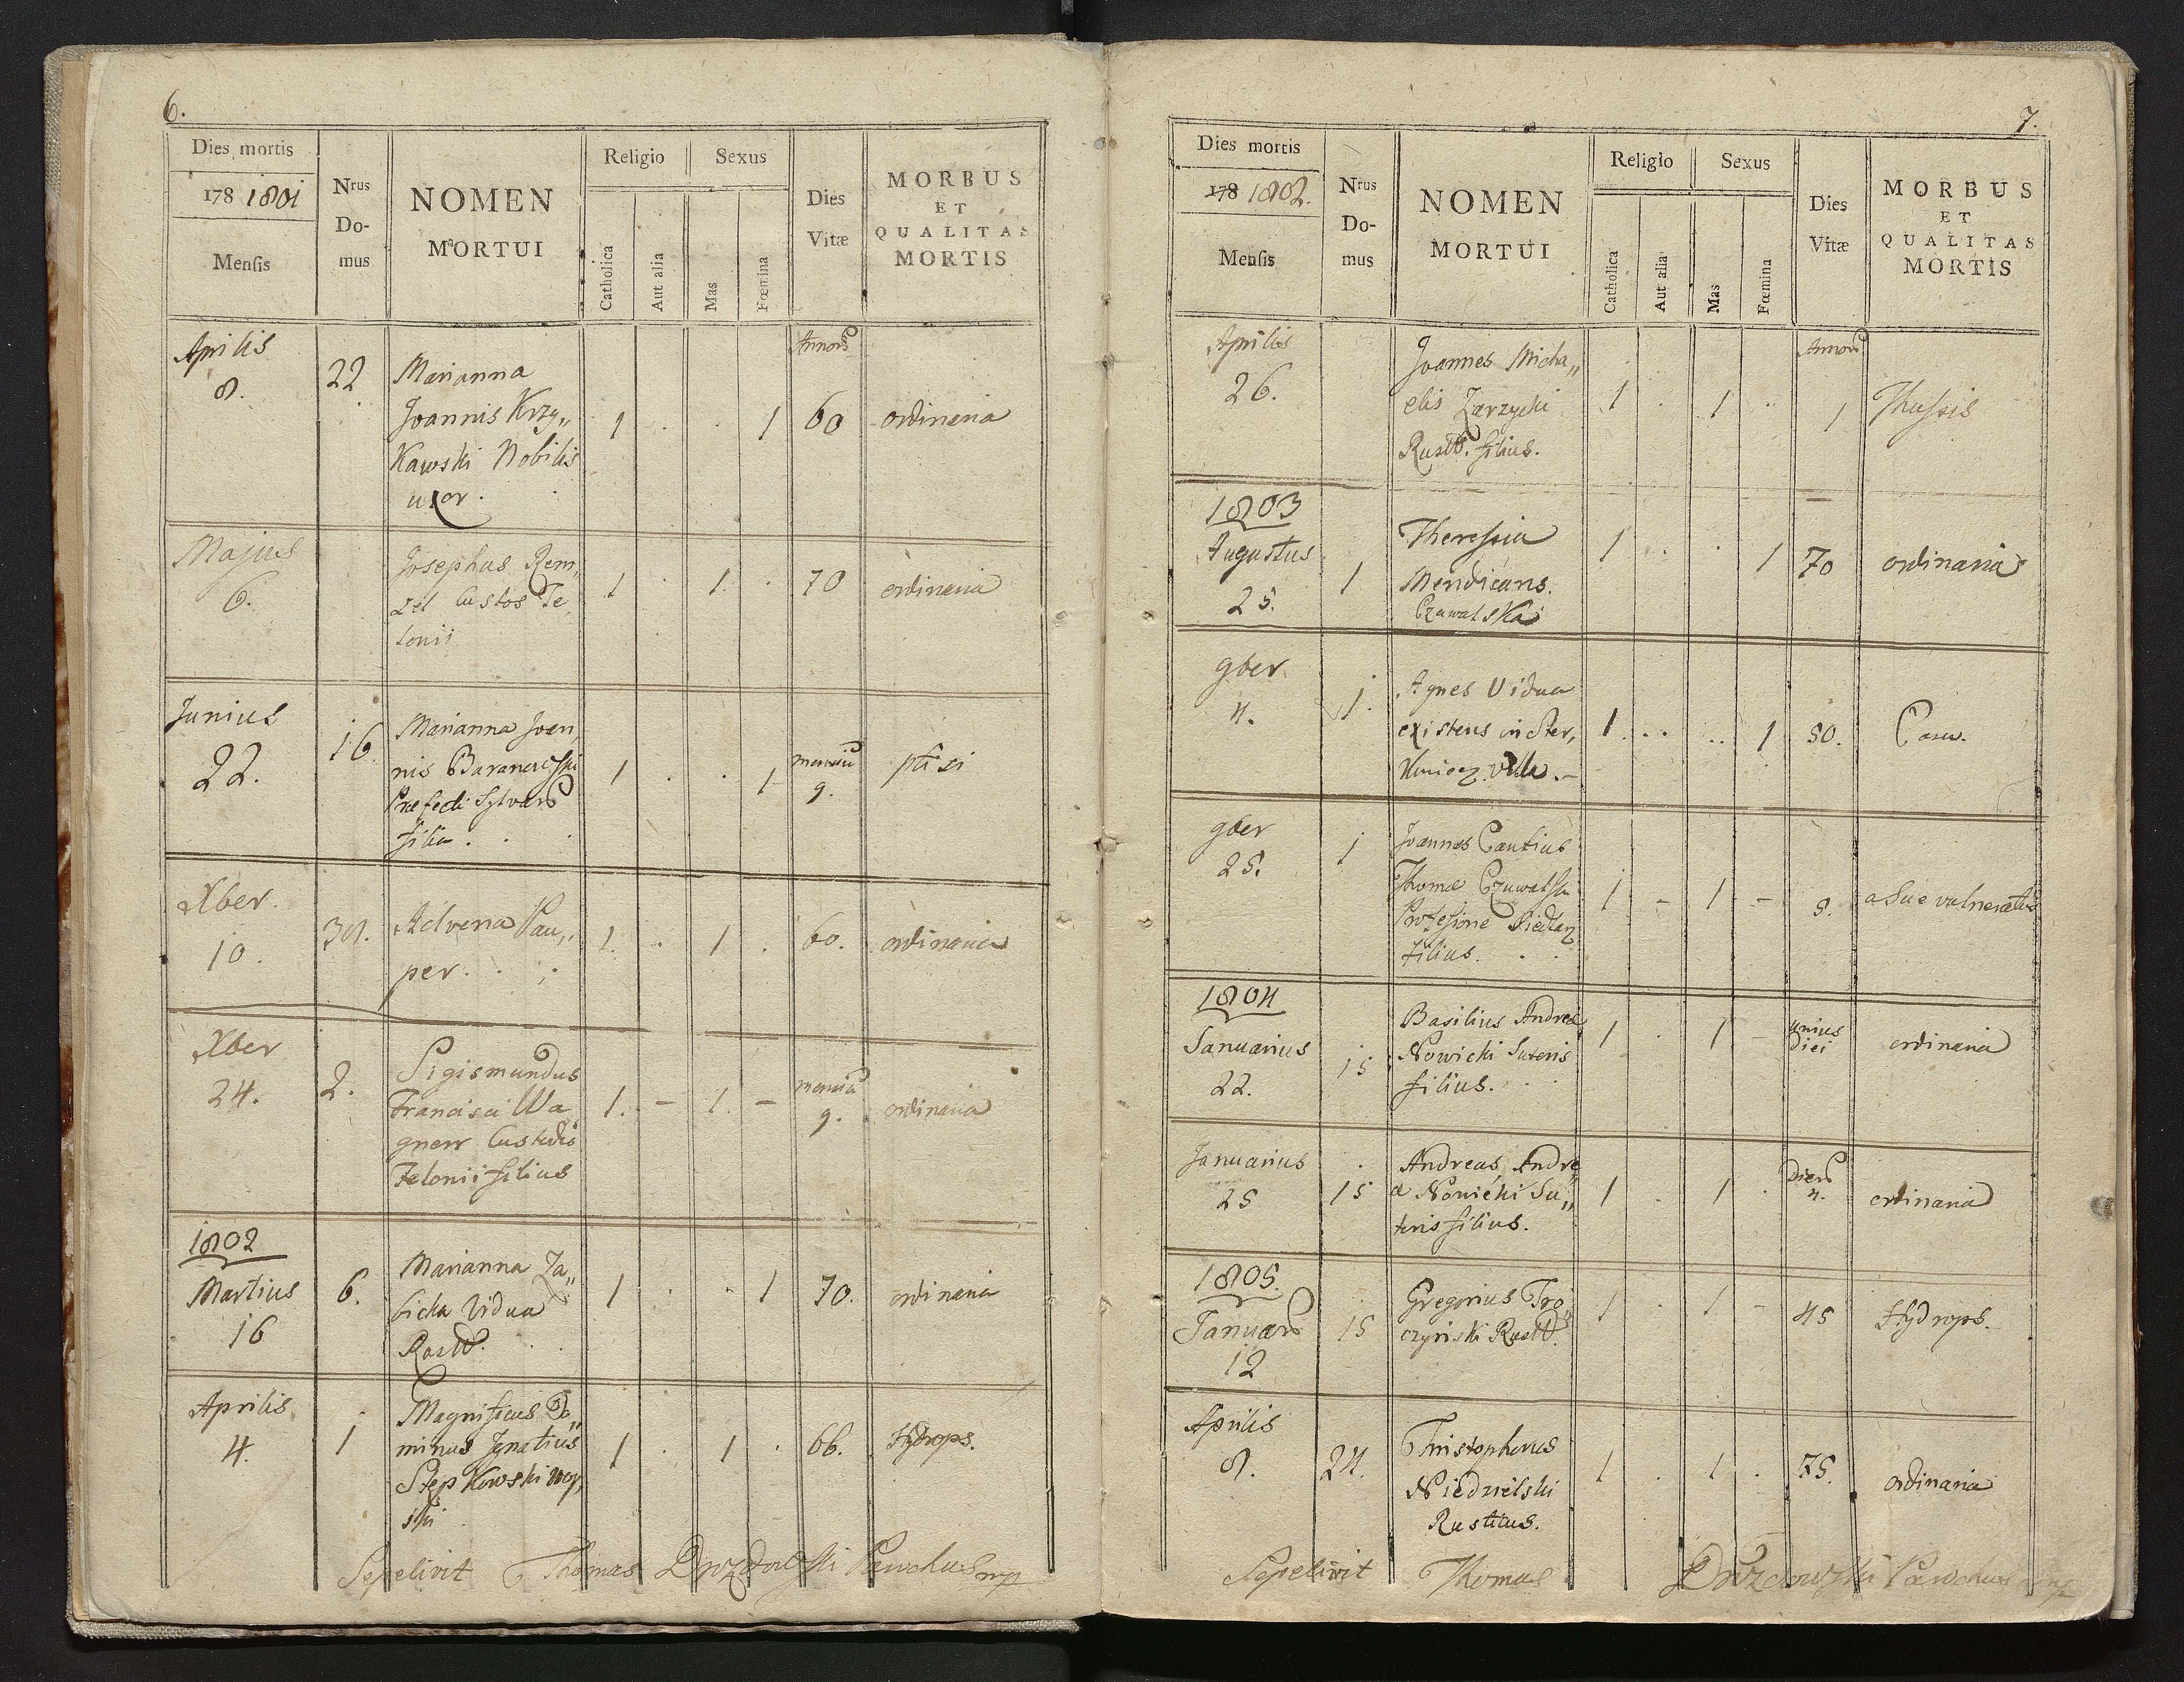 6.
Dies mortis
178 1801
Mensis
Nrus
Do-
mus
NOMEN
MORTUI
Religio
Sexus
Catholica
Aut alia
Mas
Fœmina
Dies
Vitæ
MORBUS
ET
QUALITAS
MORTIS
Annor
Aprilis
8.
22
Marianna
Joannis Krzy„
Kawski Nobilis
uxor.
1 . . 1 60 ordinaria
Majus
6.
Josephus Rem„
zel Custos Te„
lonii
1 . 1. . 70 ordinaria
Junius
22.
16
Marianna Joan„
nis
Præfecti Sylvar
filia . .
1 . . 1
mensiu
9.
ptisi
Xber.
10.
38.
Advena Pau„
per. . .
1. . 1 . 60. ordinaria
Xber
24.
2.
Sigismundus
Francisci Wa
gnerr Custodis
Telonii filius
1. – 1. –
mensiu
9.
ordinaria
1802
Martius
16
6.
Marianna Za„
bicka Vidua
Rustt.
1 . . 1 70. ordinaria
Aprilis
4.
1
Magnificus Do„
minus Ignatius
Stepkowski
1 . 1 . 66. Hydrops.
Sepelivit Thomas Drozdowski Parochus mp
7.
Dies mortis
178 1802.
Mensis
Nrus
Do-
mus
NOMEN
MORTUI
Religio
Sexus
Catholica
Aut alia
Mas
Fœmina
Dies
Vitæ
MORBUS
ET
QUALITAS
MORTIS
Annor
Aprilis
26.
Joannes Micha„
elis Zarzycki
Rustt. filius.
1 . 1 . 1 Thussis
1803
Augustus
25.
1
Theressia
Mendicans.
Czuwalska
1 . . 1 70 ordinaria
9ber
4.
1.
Agnes Vidua
existens in Ster„
villa.–
1 . . . . 1 50. Casu.
9ber
25.
1
Joannes Cantius
Thomæ Czuwalski
filius. . .
1 – 1 – 8. a Sue vulneratus
1804
Januarius
22.
15
Basilius Andreæ
Nowicki Sutoris
filius. .
1 . 1 –
unius
diei
ordinaria
Januarius
25
15
Andreas Andre„
æ Nowicki Su„
toris filius.
1 . 1 .
Dierr
4.
ordinaria
1805.
Januar
12
15
Gregorius Tro„
czynski Rustt.
1 . 1 – 45 Hydrops.
Aprilis
8.
24.
Christophorus
Niedzielski
Rusticus.
1 . 1 . 75. ordinaria
Sepelivit Thomas Drozdowski Parochus mp